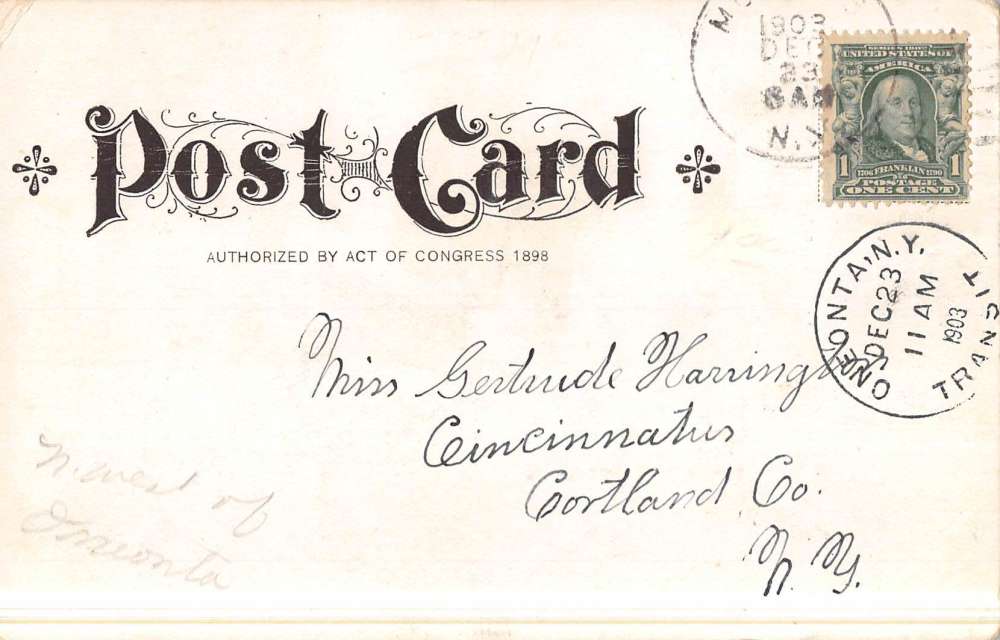 Post Card
AUTHORIZED BY ACT OF CONGRESS 1898
1903
DEC
23
6 AM
N.Y.
SERIES 1902
UNITED STATES OF
AMERICA
1 1706 FRANKLIN 1790 1
POSTAGE
ONE CENT
ONEONTA, N.Y.
DEC 23
11 AM
1903
TRANSIT
Miss Gertrude Harrington
Cincinnatus
Cortland Co.
N. Y.
N. West of
Oneonta